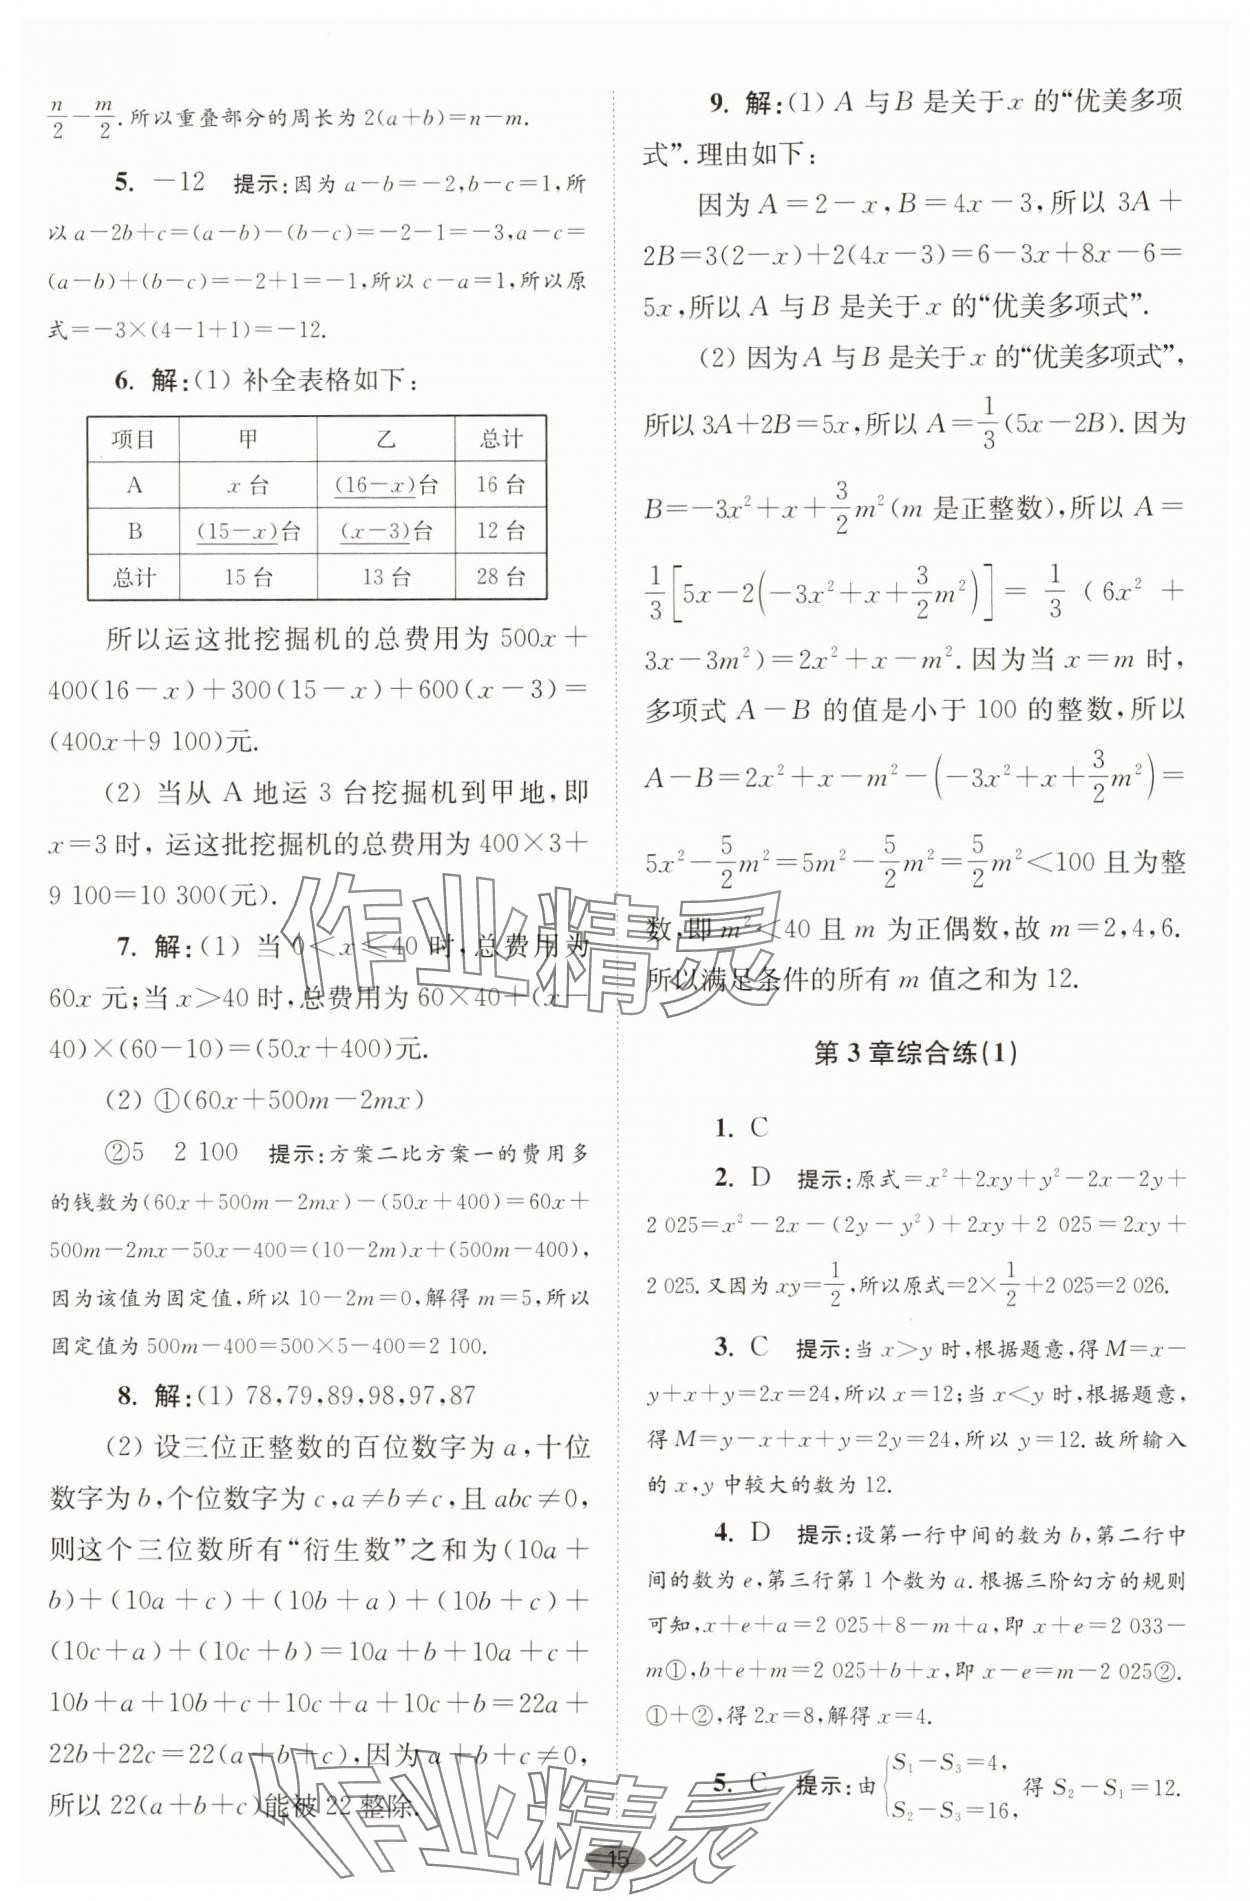 n/2－m/2.所以重叠部分的周长为2(a＋b)＝n－m.
5. －12 提示:因为a－b＝－2,b－c＝1,所
以a－2b＋c＝(a－b)－(b－c)＝－2－1＝－3,a－c＝
(a－b)＋(b－c)＝－2＋1＝－1,所以c－a＝1,所以原
式＝－3×(4－1＋1)＝－12.
6. 解:(1) 补全表格如下:
项目 甲 乙 总计
A x台 (16－x)台 16台
B (15－x)台 (x－3)台 12台
总计 15台 13台 28台
所以运这批挖掘机的总费用为500x＋
400(16－x)＋300(15－x)＋600(x－3)＝
(400x＋9 100)元.
(2) 当从A地运3台挖掘机到甲地,即
x＝3时,运这批挖掘机的总费用为400×3＋
9 100＝10 300(元).
7. 解:(1) 当0＜x≤40时,总费用为
60x元;当x＞40时,总费用为60×40＋(x－
40)×(60－10)＝(50x＋400)元.
(2) ①(60x＋500m－2mx)
②5 2 100 提示:方案二比方案一的费用多
的钱数为(60x＋500m－2mx)－(50x＋400)＝60x＋
500m－2mx－50x－400＝(10－2m)x＋(500m－400),
因为该值为固定值,所以10－2m＝0,解得m＝5,所以
固定值为500m－400＝500×5－400＝2 100.
8. 解:(1) 78,79,89,98,97,87
(2) 设三位正整数的百位数字为a,十位
数字为b,个位数字为c,a≠b≠c,且abc≠0,
则这个三位数所有“衍生数”之和为(10a＋
b)＋(10a＋c)＋(10b＋a)＋(10b＋c)＋
(10c＋a)＋(10c＋b)＝10a＋b＋10a＋c＋
10b＋a＋10b＋c＋10c＋a＋10c＋b＝22a＋
22b＋22c＝22(a＋b＋c),因为a＋b＋c≠0,
所以22(a＋b＋c)能被22整除.
9. 解:(1) A与B是关于x的“优美多项
式”.理由如下:
因为A＝2－x,B＝4x－3,所以3A＋
2B＝3(2－x)＋2(4x－3)＝6－3x＋8x－6＝
5x,所以A与B是关于x的“优美多项式”.
(2) 因为A与B是关于x的“优美多项式”,
所以3A＋2B＝5x,所以A＝1/3(5x－2B).因为
B＝－3x²＋x＋3/2m²(m是正整数),所以A＝
1/3[5x－2(－3x²＋x＋3/2m²)]＝1/3(6x²＋
3x－3m²)＝2x²＋x－m².因为当x＝m时,
多项式A－B的值是小于100的整数,所以
A－B＝2x²＋x－m²－(－3x²＋x＋3/2m²)＝
5x²－5/2m²＝5m²－5/2m²＝5/2m²＜100且为整
数,即m²＜40且m为正偶数,故m＝2,4,6.
所以满足条件的所有m值之和为12.
第3章综合练(1)
1. C
2. D 提示:原式＝x²＋2xy＋y²－2x－2y＋
2 025＝x²－2x－(2y－y²)＋2xy＋2 025＝2xy＋
2 025.又因为xy＝1/2,所以原式＝2×1/2＋2 025＝2 026.
3. C 提示:当x＞y时,根据题意,得M＝x－
y＋x＋y＝2x＝24,所以x＝12;当x＜y时,根据题意,
得M＝y－x＋x＋y＝2y＝24,所以y＝12.故所输入
的x,y中较大的数为12.
4. D 提示:设第一行中间的数为b,第二行中
间的数为e,第三行第1个数为a.根据三阶幻方的规则
可知,x＋e＋a＝2 025＋8－m＋a,即x＋e＝2 033－
m①,b＋e＋m＝2 025＋b＋x,即x－e＝m－2 025②.
①＋②,得2x＝8,解得x＝4.
5. C 提示:由{S₁－S₃＝4, S₂－S₃＝16, 得S₂－S₁＝12.
15
作业精灵
作业精灵